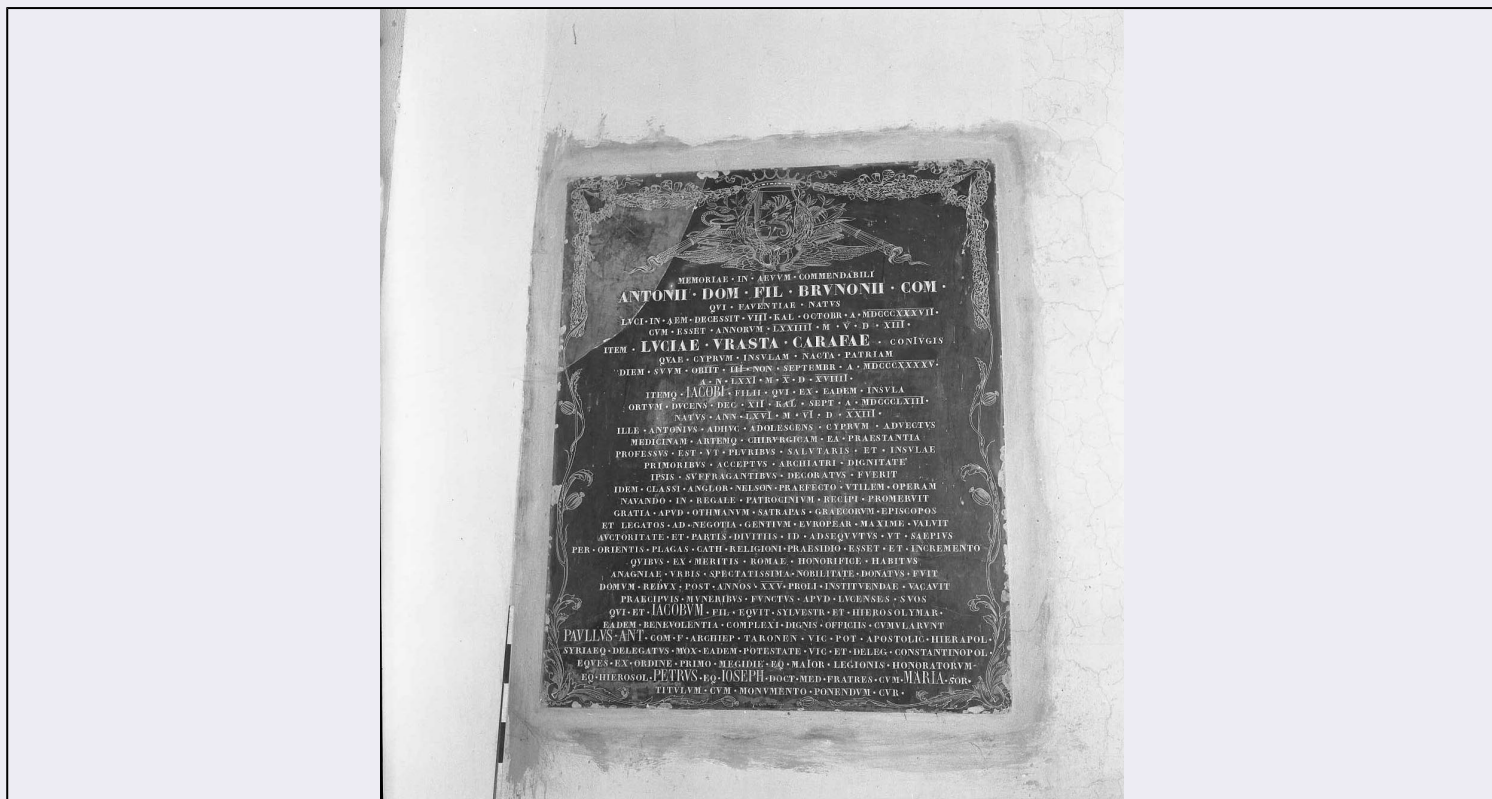 MEMORIAE · IN · AEVVM · COMMENDABILI
ANTONII · DOM · FIL · BRVNONII · COM ·
QVI · FAVENTIAE · NATVS
LVCI · IN · AEM · DECESSIT · VIII · KAL · OCTOBR · A · MDCCCXXXVII ·
CVM · ESSET · ANNORVM · LXXIIII · M · V · D · XIII ·
ITEM · LVCIAE · VRASTA · CARAFAE · CONIVGIS
QVAE · CYPRVM · INSVLAM · NACTA · PATRIAM
DIEM · SVVM · OBIIT · III · NON · SEPTEMBR · A · MDCCCXXXXV ·
A · N · LXXI · M · X · D · XVIIII ·
ITEMQ · IACOBI · FILII · QVI · EX · EADEM · INSVLA
ORTVM · DVCENS · DEC · XII · KAL · SEPT · A · MDCCCLXIII ·
NATVS · ANN · LXVI · M · VI · D · XXIII ·
ILLE · ANTONIVS · ADHVC · ADOLESCENS · CYPRVM · ADVECTVS
MEDICINAM · ARTEMQ · CHIRVRGICAM · EA · PRAESTANTIA
PROFESSVS · EST · VT · PLVRIBVS · SALVTARIS · ET · INSVLAE
PRIMORIBVS · ACCEPTVS · ARCHIATRI · DIGNITATE
IPSIS · SVFFRAGANTIBVS · DECORATVS · FVERIT
IDEM · CLASSI · ANGLOR · NELSON · PRAEFECTO · VTILEM · OPERAM
NAVANDO · IN · REGALE · PATROCINIVM · RECIPI · PROMERVIT
GRATIA · APVD · OTHMANVM · SATRAPAS · GRAECORVM · EPISCOPOS
ET LEGATOS · AD · NEGOTIA · GENTIVM · EVROPEAR · MAXIME · VALVIT
AVCTORITATE · ET · PARTIS · DIVITIIS · ID · ADSEQVVTVS · VT · SAEPIVS
PER · ORIENTIS · PLAGAS · CATH · RELIGIONI · PRAESIDIO · ESSET · ET · INCREMENTO
QVIBVS · EX · MERITIS · ROMAE · HONORIFICE · HABITVS
ANAGNIAE · VRBIS · SPECTATISSIMA · NOBILITATE · DONATVS · FVIT
DOMVM · REDVX · POST · ANNOS · XXV · PROLI · INSTITVENDAE · VACAVIT
PRAECIPVIS · MVNERIBVS · FVNCTVS · APVD · LVCENSES · SVOS
QVI · ET · IACOBVM · FIL · EQVIT · SYLVESTR · ET · HIEROSOLYMAR ·
EADEM · BENEVOLENTIA · COMPLEXI · DIGNIS · OFFICIIS · CVMVLARVNT
PAVLLVS · ANT · COM · F · ARCHIEP · TARONEN · VIC · POT · APOSTOLIC · HIERAPOL ·
SYRIAEQ · DELEGATVS · MOX · EADEM · POTESTATE · VIC · ET · DELEG · CONSTANTINOPOL ·
EQVES · EX · ORDINE · PRIMO · MEGIDIE · EQ · MAIOR · LEGIONIS · HONORATORVM ·
EQ · HIEROSOL · PETRVS · EQ · IOSEPH · DOCT · MED · FRATRES · CVM · MARIA · SOR ·
TITVLVM · CVM · MONVMENTO · PONENDVM · CVR ·